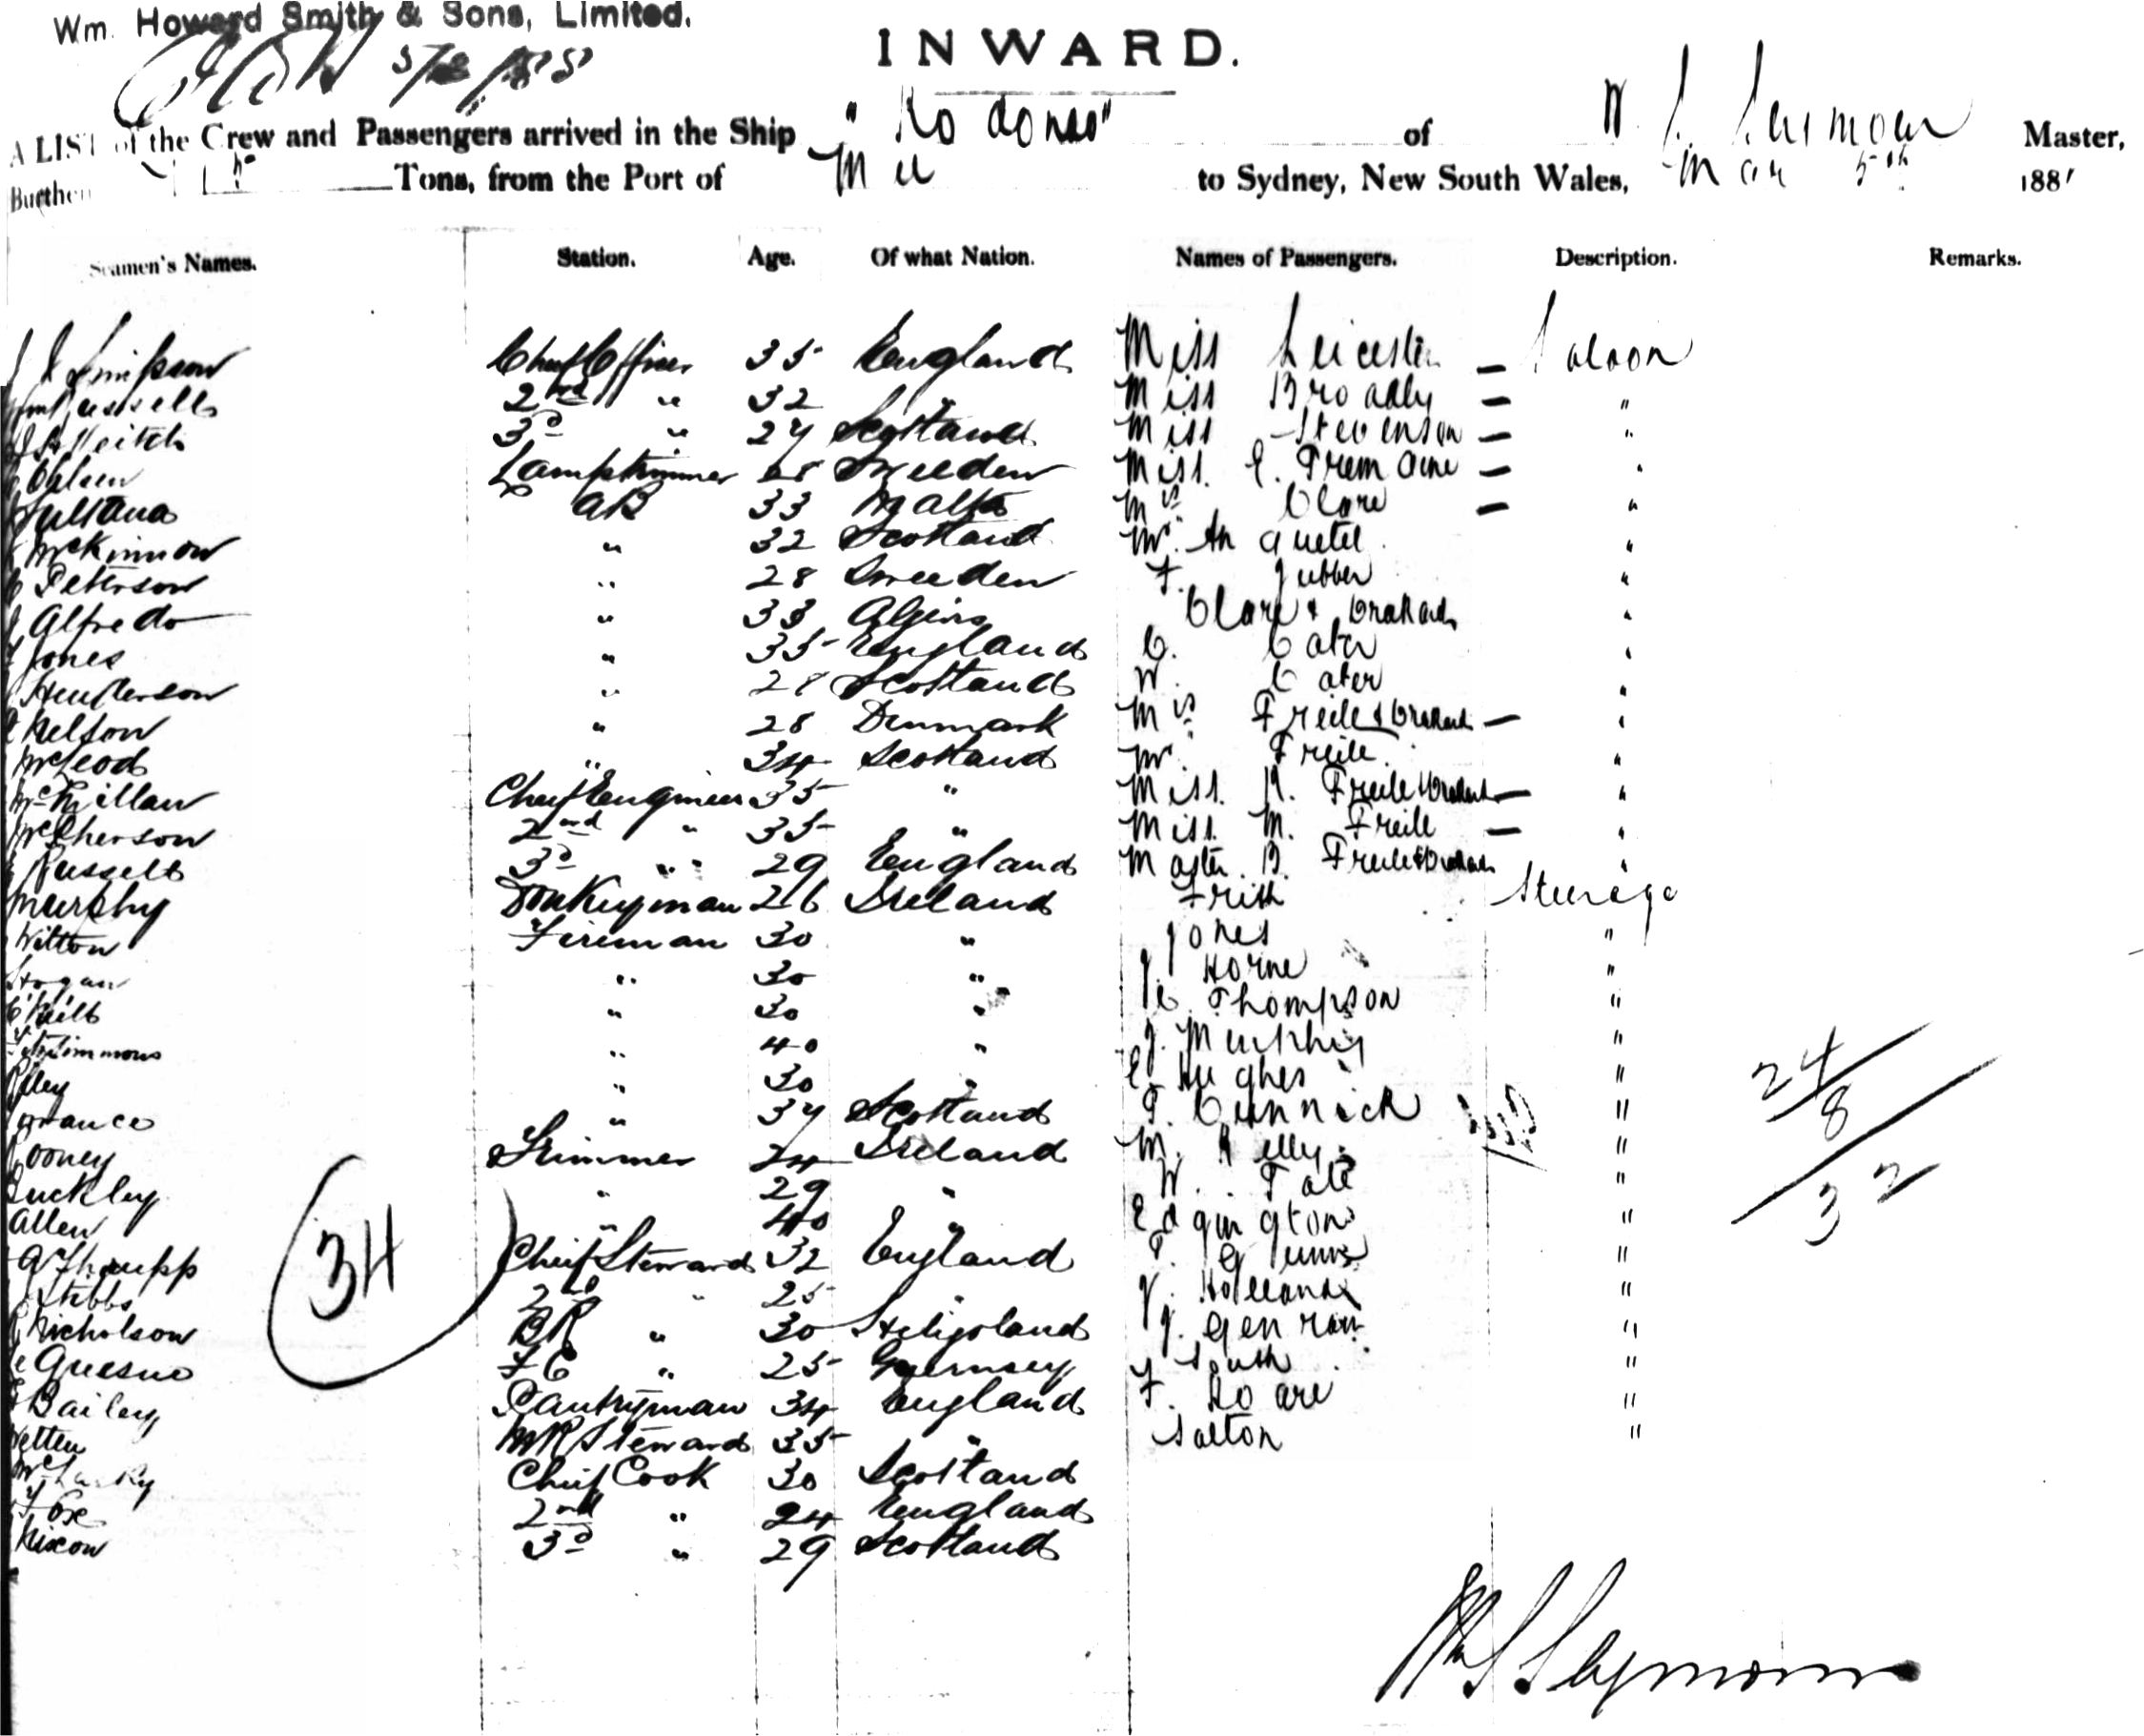 Wm. Howard Smith & Sons, Limited.
INWARD.
A LIST of the Crew and Passengers arrived in the Ship "Rodondo" of W. S. Seymour Master,
Burthen Tons, from the Port of Mel to Sydney, New South Wales, Mar 5th 188
Seamen's Names. Station. Age. Of what Nation. Names of Passengers. Description. Remarks.
Simpson Chief Officer 35 England Miss Leicester – Saloon
Russell 2nd " 32 " Miss Broadly – "
Veitch 3d " 27 Scotland Miss Stevenson – "
Ohlsen Lamptrimmer 28 Sweeden Miss. E. Trem –  "
Sultana AB 33 Malta Mrs Clare – "
McKinnow " 32 Scotland Mr. "
Peterson " 28 Sweeden F. Jubber "
Alfredo " 33 Algiers Clare & "
Jones " 35 England C. Cater "
Henderson " 28 Scotland W. Cater "
Nelson " 28 Denmark Mrs Freile & – "
McLeod " 34 Scotland Mr. Freile "
McMillan Chief Engineer 35 " Miss. Freile & – "
McPherson 2nd " 35 " Miss M. Freile – "
Russell 3d " 29 England Master B. Freile & "
Murphy Donkeyman 26 Ireland Frith Steerage
Witton Fireman 30 " Jones "
Hogan " 30 " J. Horne "
O'Neill " 30 " Thompson "
Fitzsimmons " 40 " J. Murphy "
Riley " 30 " E Hughes "
" 37 Scotland T. Cunnick "
Rooney Trimmer 24 Ireland M. Kelly "
Buckley " 29 " W. Tate "
Allen " 40 " Edgington "
Thrupp Chief Steward 32 England T. "
Stibbs 2nd " 25 J. Holland "
Nicholson BR " 30 Heligoland J. "
Le Quesne FC " 25 Guernsey South "
Bailey Pantryman 34 England F. Hoare "
Wetten Steward 35 " Salton "
Chief Cook 30 Scotland
Fox 2nd " 24 England
Nixon 3d " 29 Scotland
34
24
8
32
Wm S Seymour